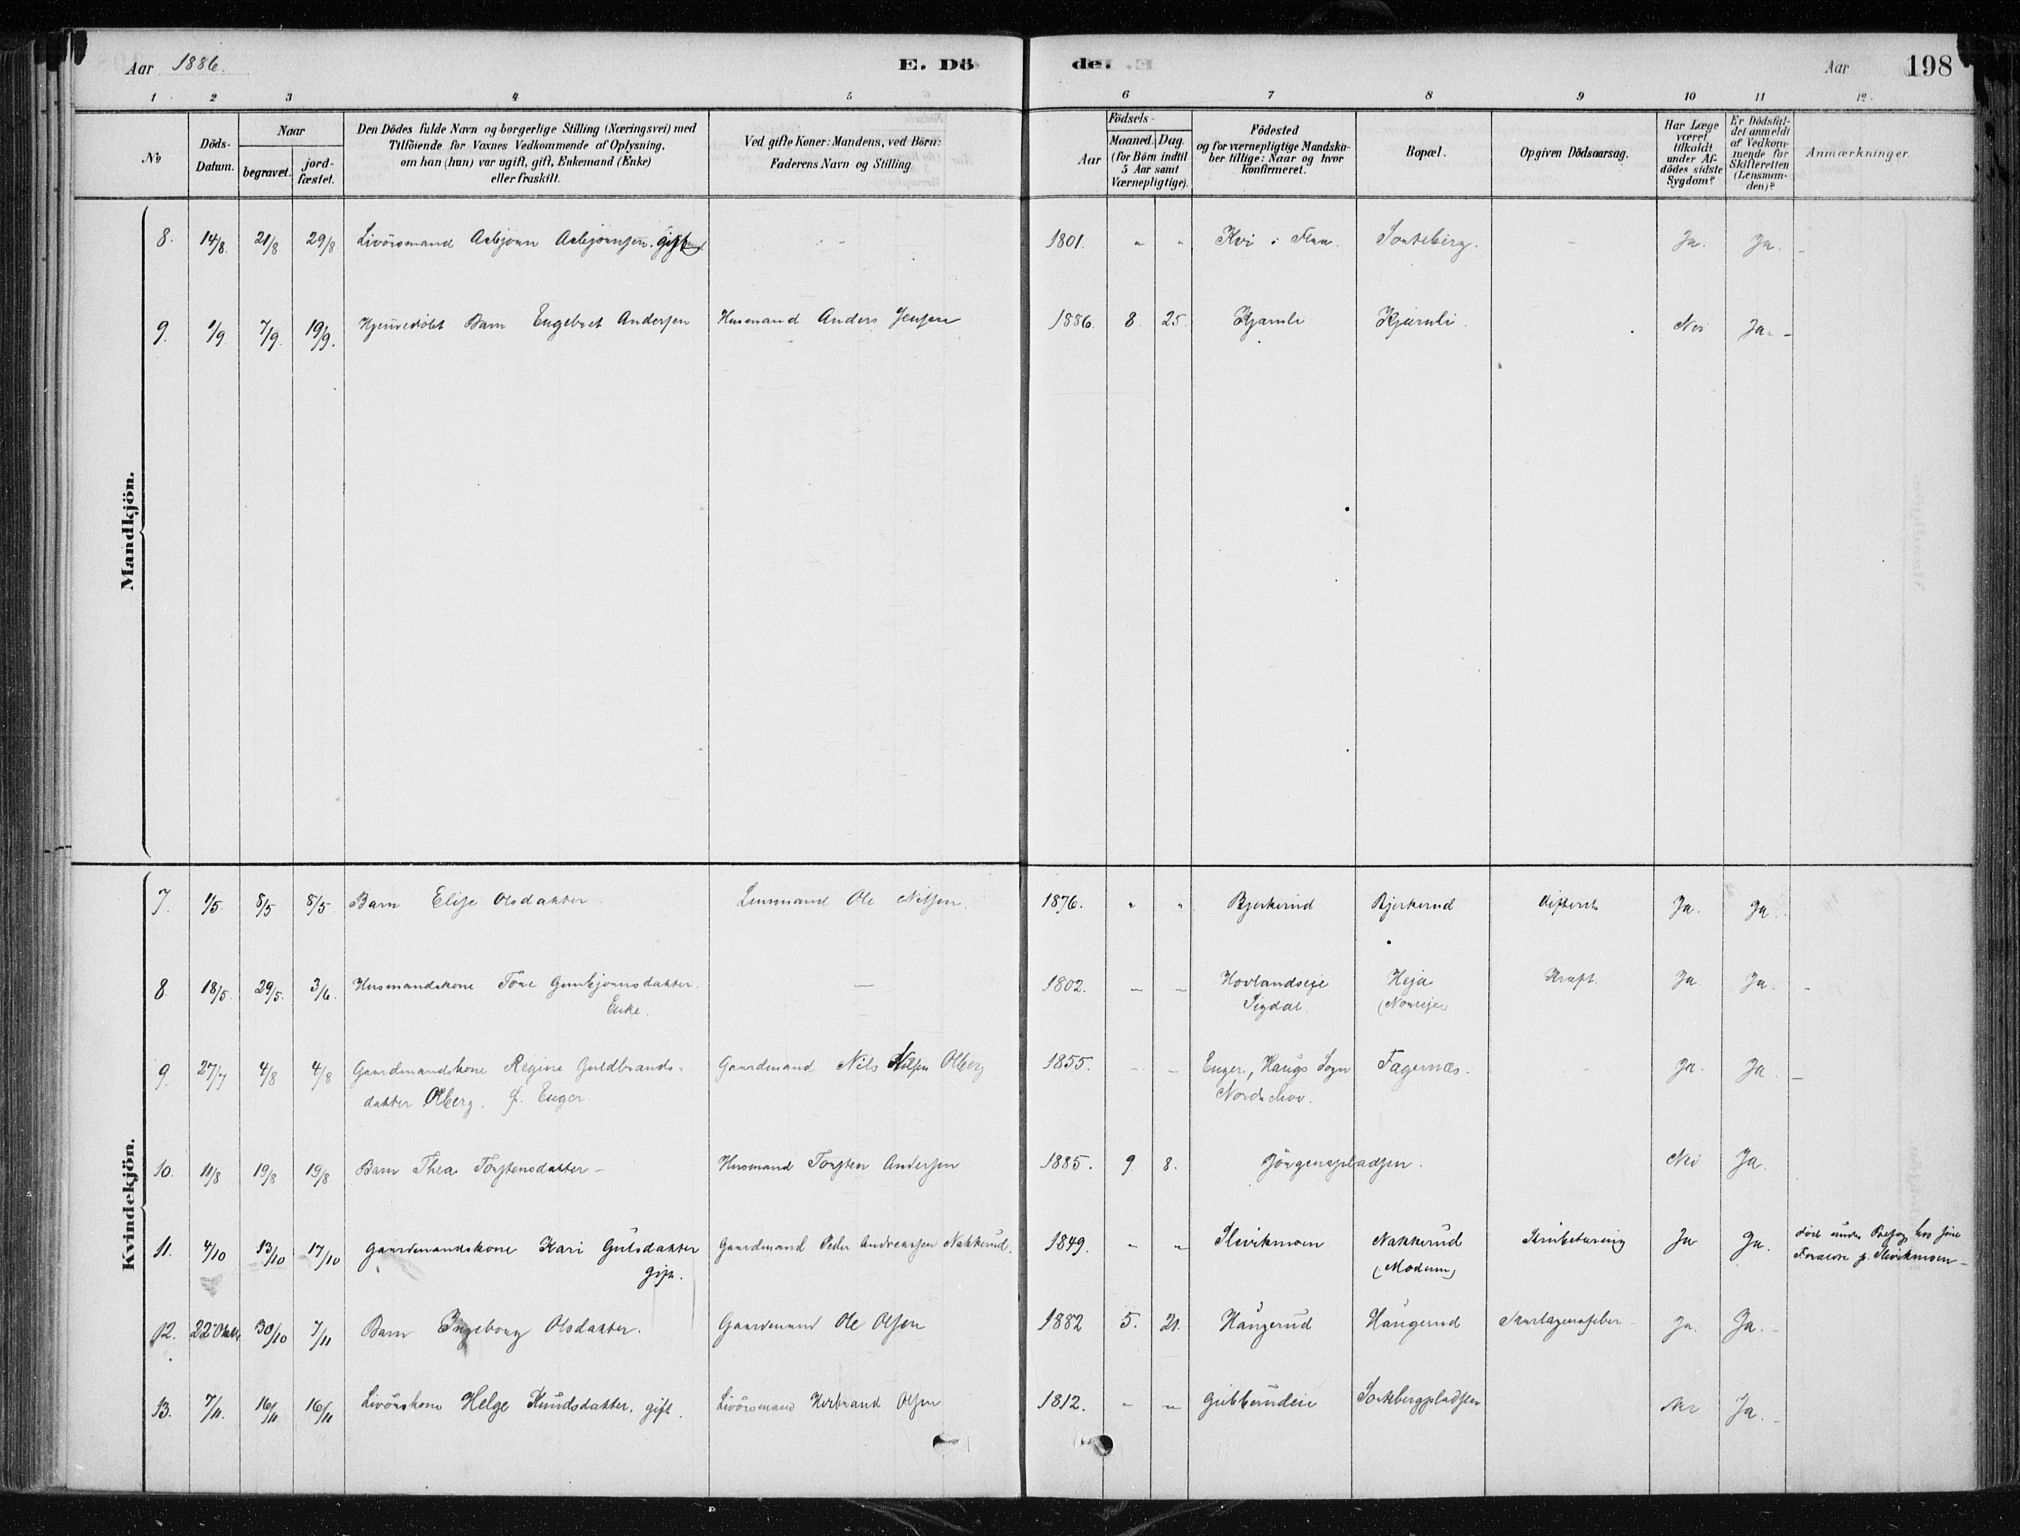 Aar 1886.
E. Dö
de.
Aar
198
1 2 3 4 5 6 7 8 9 10 11 12
No
Döds-
Datum.
Naar
begravet.
jord-
fæstet.
Den Dödes fulde Navn og borgerlige Stilling (Næringsvei) med
Tilföiende for Voxnes Vedkommende af Oplysning.
om han (hun) var ugift, gift, Enkemand (Enke)
eller fraskilt.
Ved gifte Koner: Mandens, ved Börn:
Faderens Navn og Stilling.
Födsels-
Aar
Maaned. Dag.
(for Börn indtil
5 Aar samt
Værnepligtige).
Födested
og for værnepligtige Mandska-
ber tillige: Naar og hvor
konfirmeret.
Bopæl.
Opgiven Dödsaarsag.
Har Læge
været
tilkaldt
under Af-
dödes sidste
Sygdom?
Er Dödsfal-
det anmeldt
af Vedkom-
mende for
Skifteretten
(Lensman-
den)?
Anmærkninger
Mandkjön.
8. 14/8. 21/8 29/8 Livörsmand Asbjörn Asbjörnsen. gift 1801. " " Kvi i Flaa. Sorteberg. - Ja. Ja. -
9. 1/9 7/9. 19/9. Barn Engebret Andersen Husmand Anders Jensen 1886. 8. 25. Kjærnli Kjærnli. Nei Ja. -
Kvindekjön.
7. 1/5. 8/5 8/5. Barn Elise Olsdatter. Lensmand Ole Nilsen. 1876. " " Bjerkerud Bjerkerud Difterit Ja. Ja.
8 18/5. 29/5. 3/6. Husmandskone Tone Gunbjörnsdatter. — 1802. - - Hovlandseje Heja Kræft. Ja. Ja. -
Enke. Sigdal.
9. 27/7 4/8 4/8 Gaardmandskone Regine Guldbrands- Gaardmand Nils Nilsen Olberg 1855. - - Enger, Haugs Sogn Fagernæs. - Ja. Ja. -
datter Olberg. f. Enger. Nordrehov.
10. 11/8 19/8 19/8 Barn Thea Torstensdatter - Husmand Torsten Andersen 1885. 9. 8. Jörgenspladsen. Nei Ja.
11. 4/10 13/10 17/10 Gaardmandskone Kari Gulsdatter Gaardmand Peder Andreassen Nakkerud. 1849. " " Slevikmoen Nakkerud Ja Ja. död under hos sine
gift. (Modum) Forældre p. Slevikmoen -
12. 22 Oktbr. 30/10 7/11 Barn Ingeborg Olsdatter. Gaardmand Ole Olsen 1882 5. 21. Haugerud Haugerud Skarlagensfeber - Ja. Ja. -
13. 7/11. 16/11 16/11 Livörskone Helge Knudsdatter. gift. Livörsmand Herbrand Olsen 1812. - - Gubberudeie Sortebergpladsen Nei Ja. -